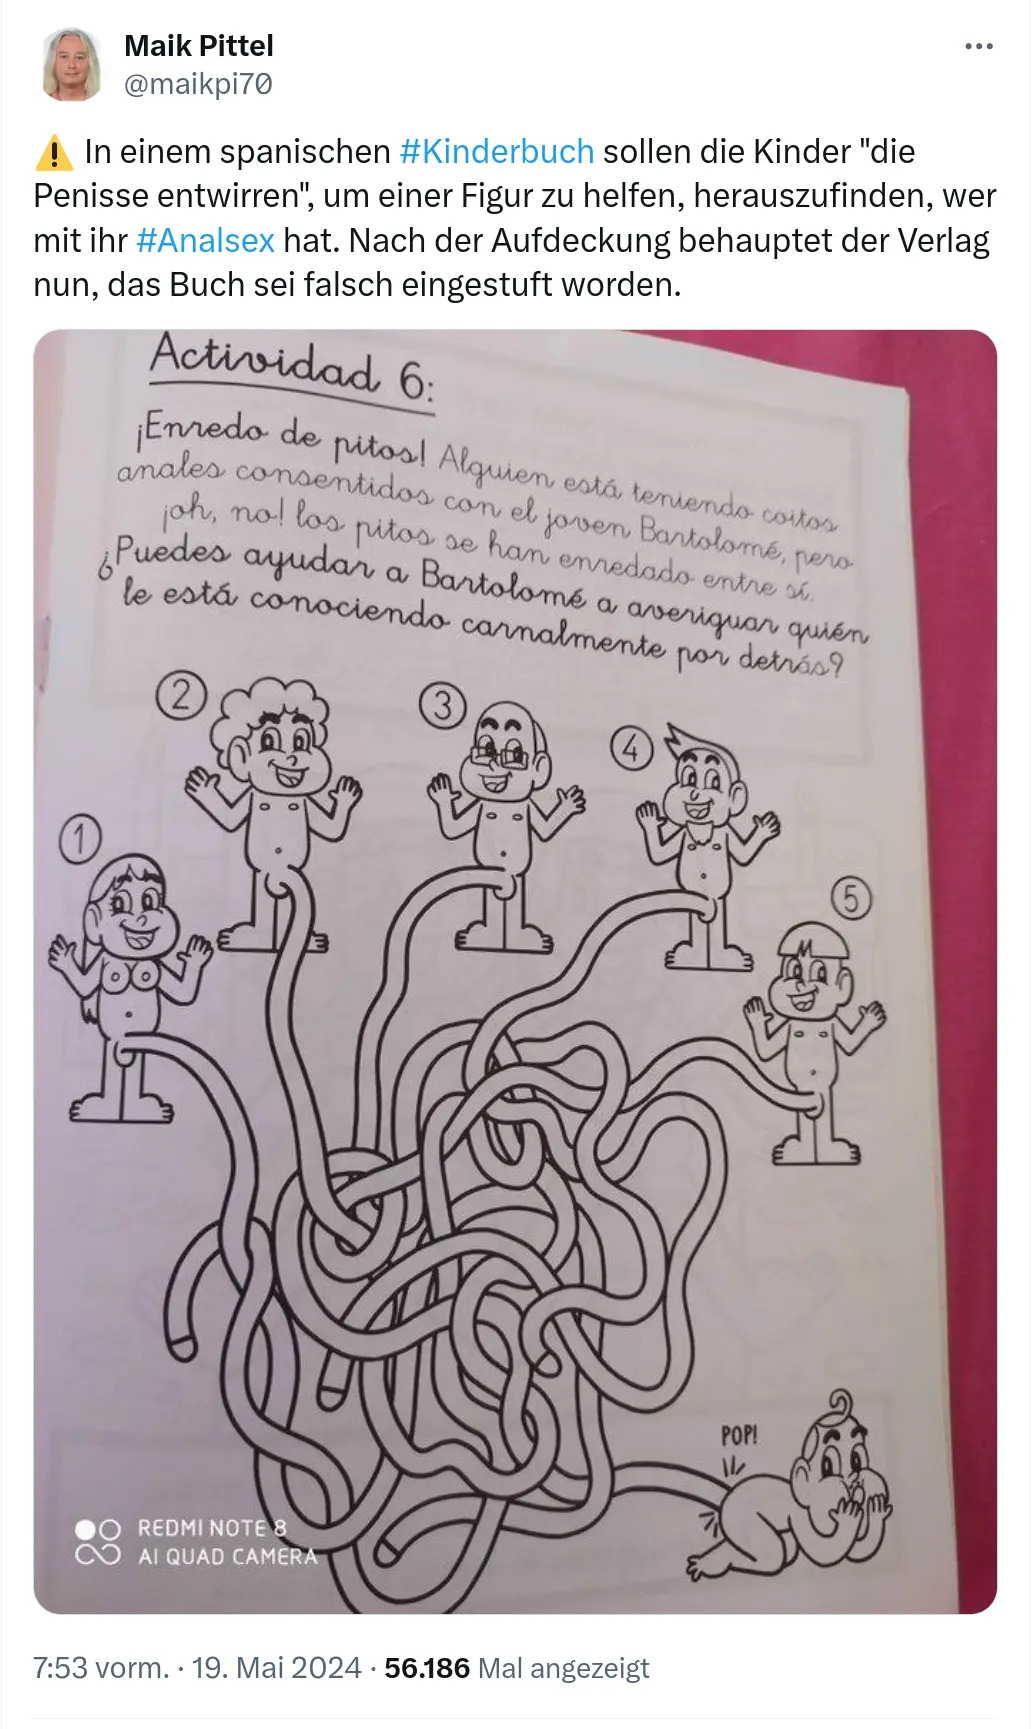 Maik Pittel
@maikpi70
⚠️ In einem spanischen #Kinderbuch sollen die Kinder "die
Penisse entwirren", um einer Figur zu helfen, herauszufinden, wer
mit ihr #Analsex hat. Nach der Aufdeckung behauptet der Verlag
nun, das Buch sei falsch eingestuft worden.
Actividad 6:
¡Enredo de pitos! Alguien está teniendo coitos
anales consentidos con el joven Bartolomé, pero
¡oh, no! los pitos se han enredado entre sí.
¿Puedes ayudar a Bartolomé a averiguar quién
le está conociendo carnalmente por detrás?
2
3
4
1
5
POP!
REDMI NOTE 8
AI QUAD CAMERA
7:53 vorm. · 19. Mai 2024 · 56.186 Mal angezeigt